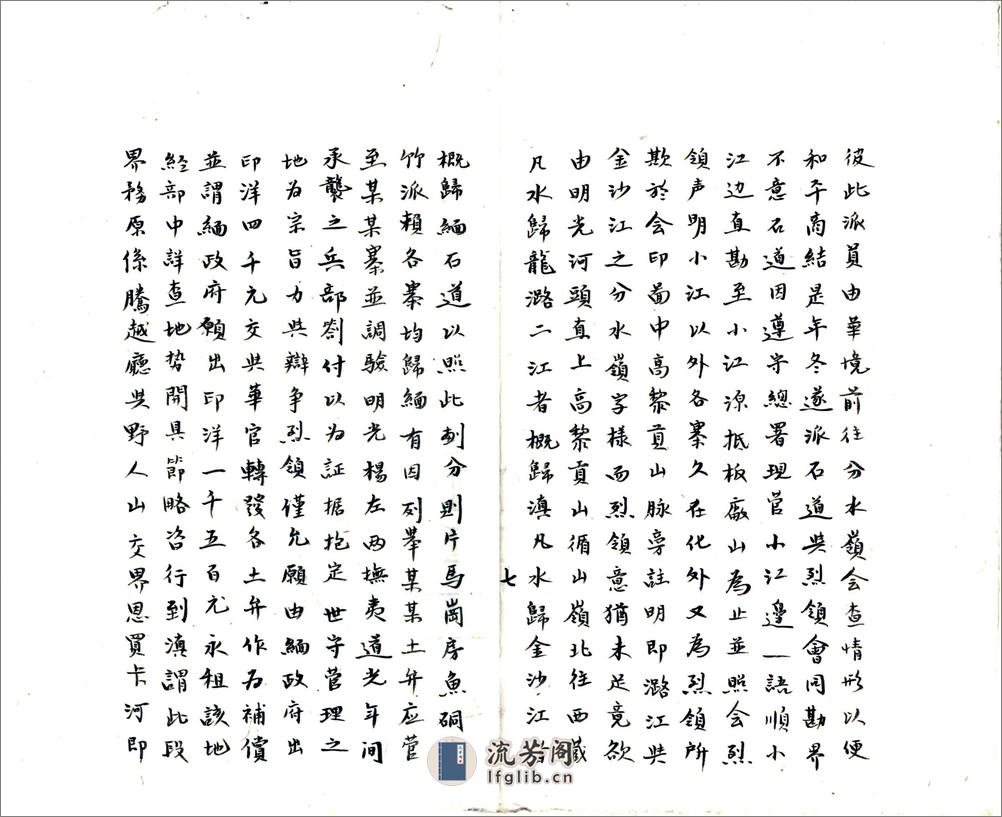 彼此派員由華境前往分水嶺会查情形以便
和平商結是年冬遂派石道與烈領會同勘界
不意石道因遵守總署現管小江邊一語順小
江边直勘至小江源抵板廠山為止並照会烈
領声明小江以外各寨久在化外又為烈領所
欺於会印啚中高黎貢山脉旁註明即潞江與
金沙江之分水嶺字樣而烈領意猶未足竟欲
由明光河頭直上高黎貢山循山嶺北往西藏
凡水歸龍潞二江者概歸滇凡水歸金沙江者
七
概歸緬石道以照此劃分則片馬崗房魚硐
竹派賴各寨均歸緬有因列舉某某土弁应管
至某某寨並調驗明光楊左两撫夷道光年间
承襲之兵部劄付以为証据抱定世守管理之
地为宗旨力與辯争烈領僅允願由緬政府出
印洋四千元交與華官轉發各土弁作为補償
並謂緬政府願出印洋一千五百元永租該地
經部中詳查地势開具節略咨行到滇謂此段
界務原係騰越廳與野人山交界恩買卡河即
流芳阁
lfglib.cn